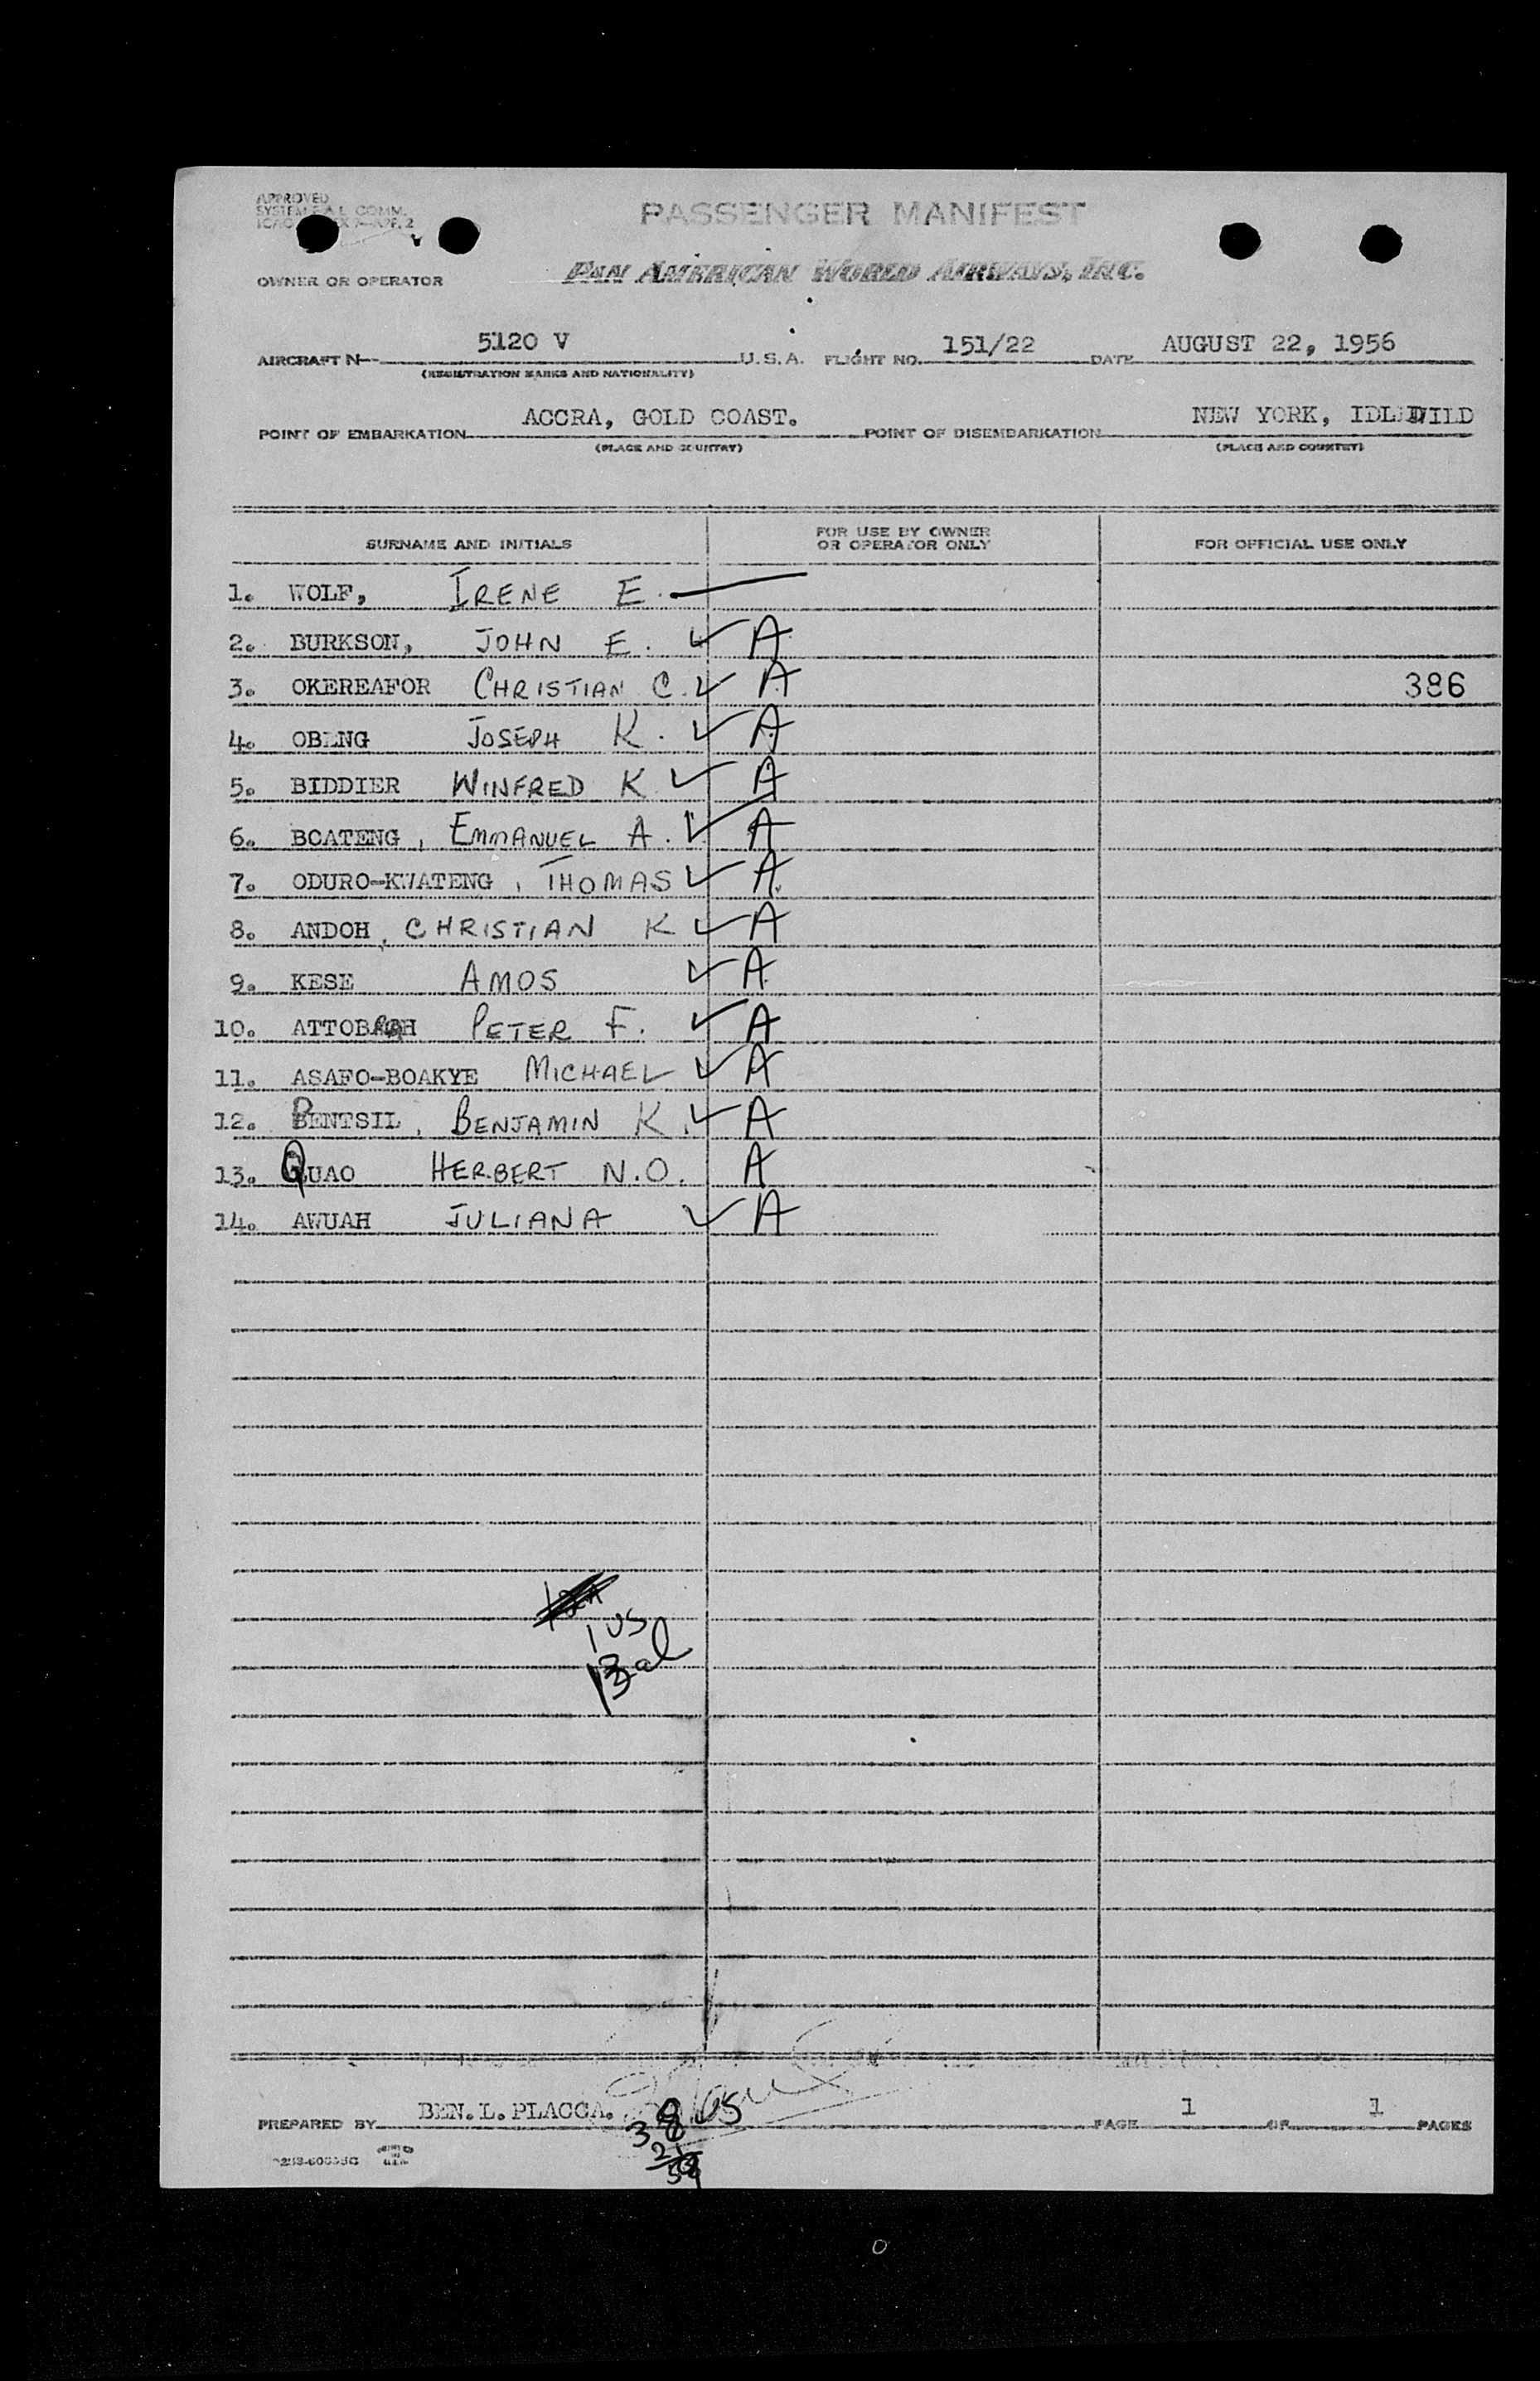 APPROVED
PASSENGER MANIFEST
OWNER OR OPERATOR PAN AMERICAN WORLD AIRWAYS, INC.
AIRCRAFT N 5120 V U.S.A. FLIGHT NO. 151/22 DATE AUGUST 22, 1956
(REGISTRATION MARKS AND NATIONALITY)
POINT OF EMBARKATION ACCRA, GOLD COAST. POINT OF DISEMBARKATION NEW YORK, IDLEWILD
(PLACE AND COUNTRY) (PLACE AND COUNTRY)
SURNAME AND INITIALS FOR USE BY OWNER OR OPERATOR ONLY FOR OFFICIAL USE ONLY
1. WOLF, IRENE E.
2. BURKSON, JOHN E. ✓ A
3. OKEREAFOR CHRISTIAN C. ✓ A 386
4. OBENG JOSEPH K. ✓ A
5. BIDDIER WINFRED K ✓ A
6. BOATENG, EMMANUEL A. ✓ A
7. ODURO-KWATENG, THOMAS ✓ A
8. ANDOH, CHRISTIAN K ✓ A
9. KESE AMOS ✓ A
10. PETER F. ✓ A
11. ASAFO-BOAKYE MICHAEL ✓ A
12. BENTSIL, BENJAMIN K. ✓ A
13. QUAO HERBERT N.O. A
14. AWUAH JULIANA ✓ A
1 US
13 al
PREPARED BY BEN. L. PLACCA. US PAGE 1 OF 1 PAGES